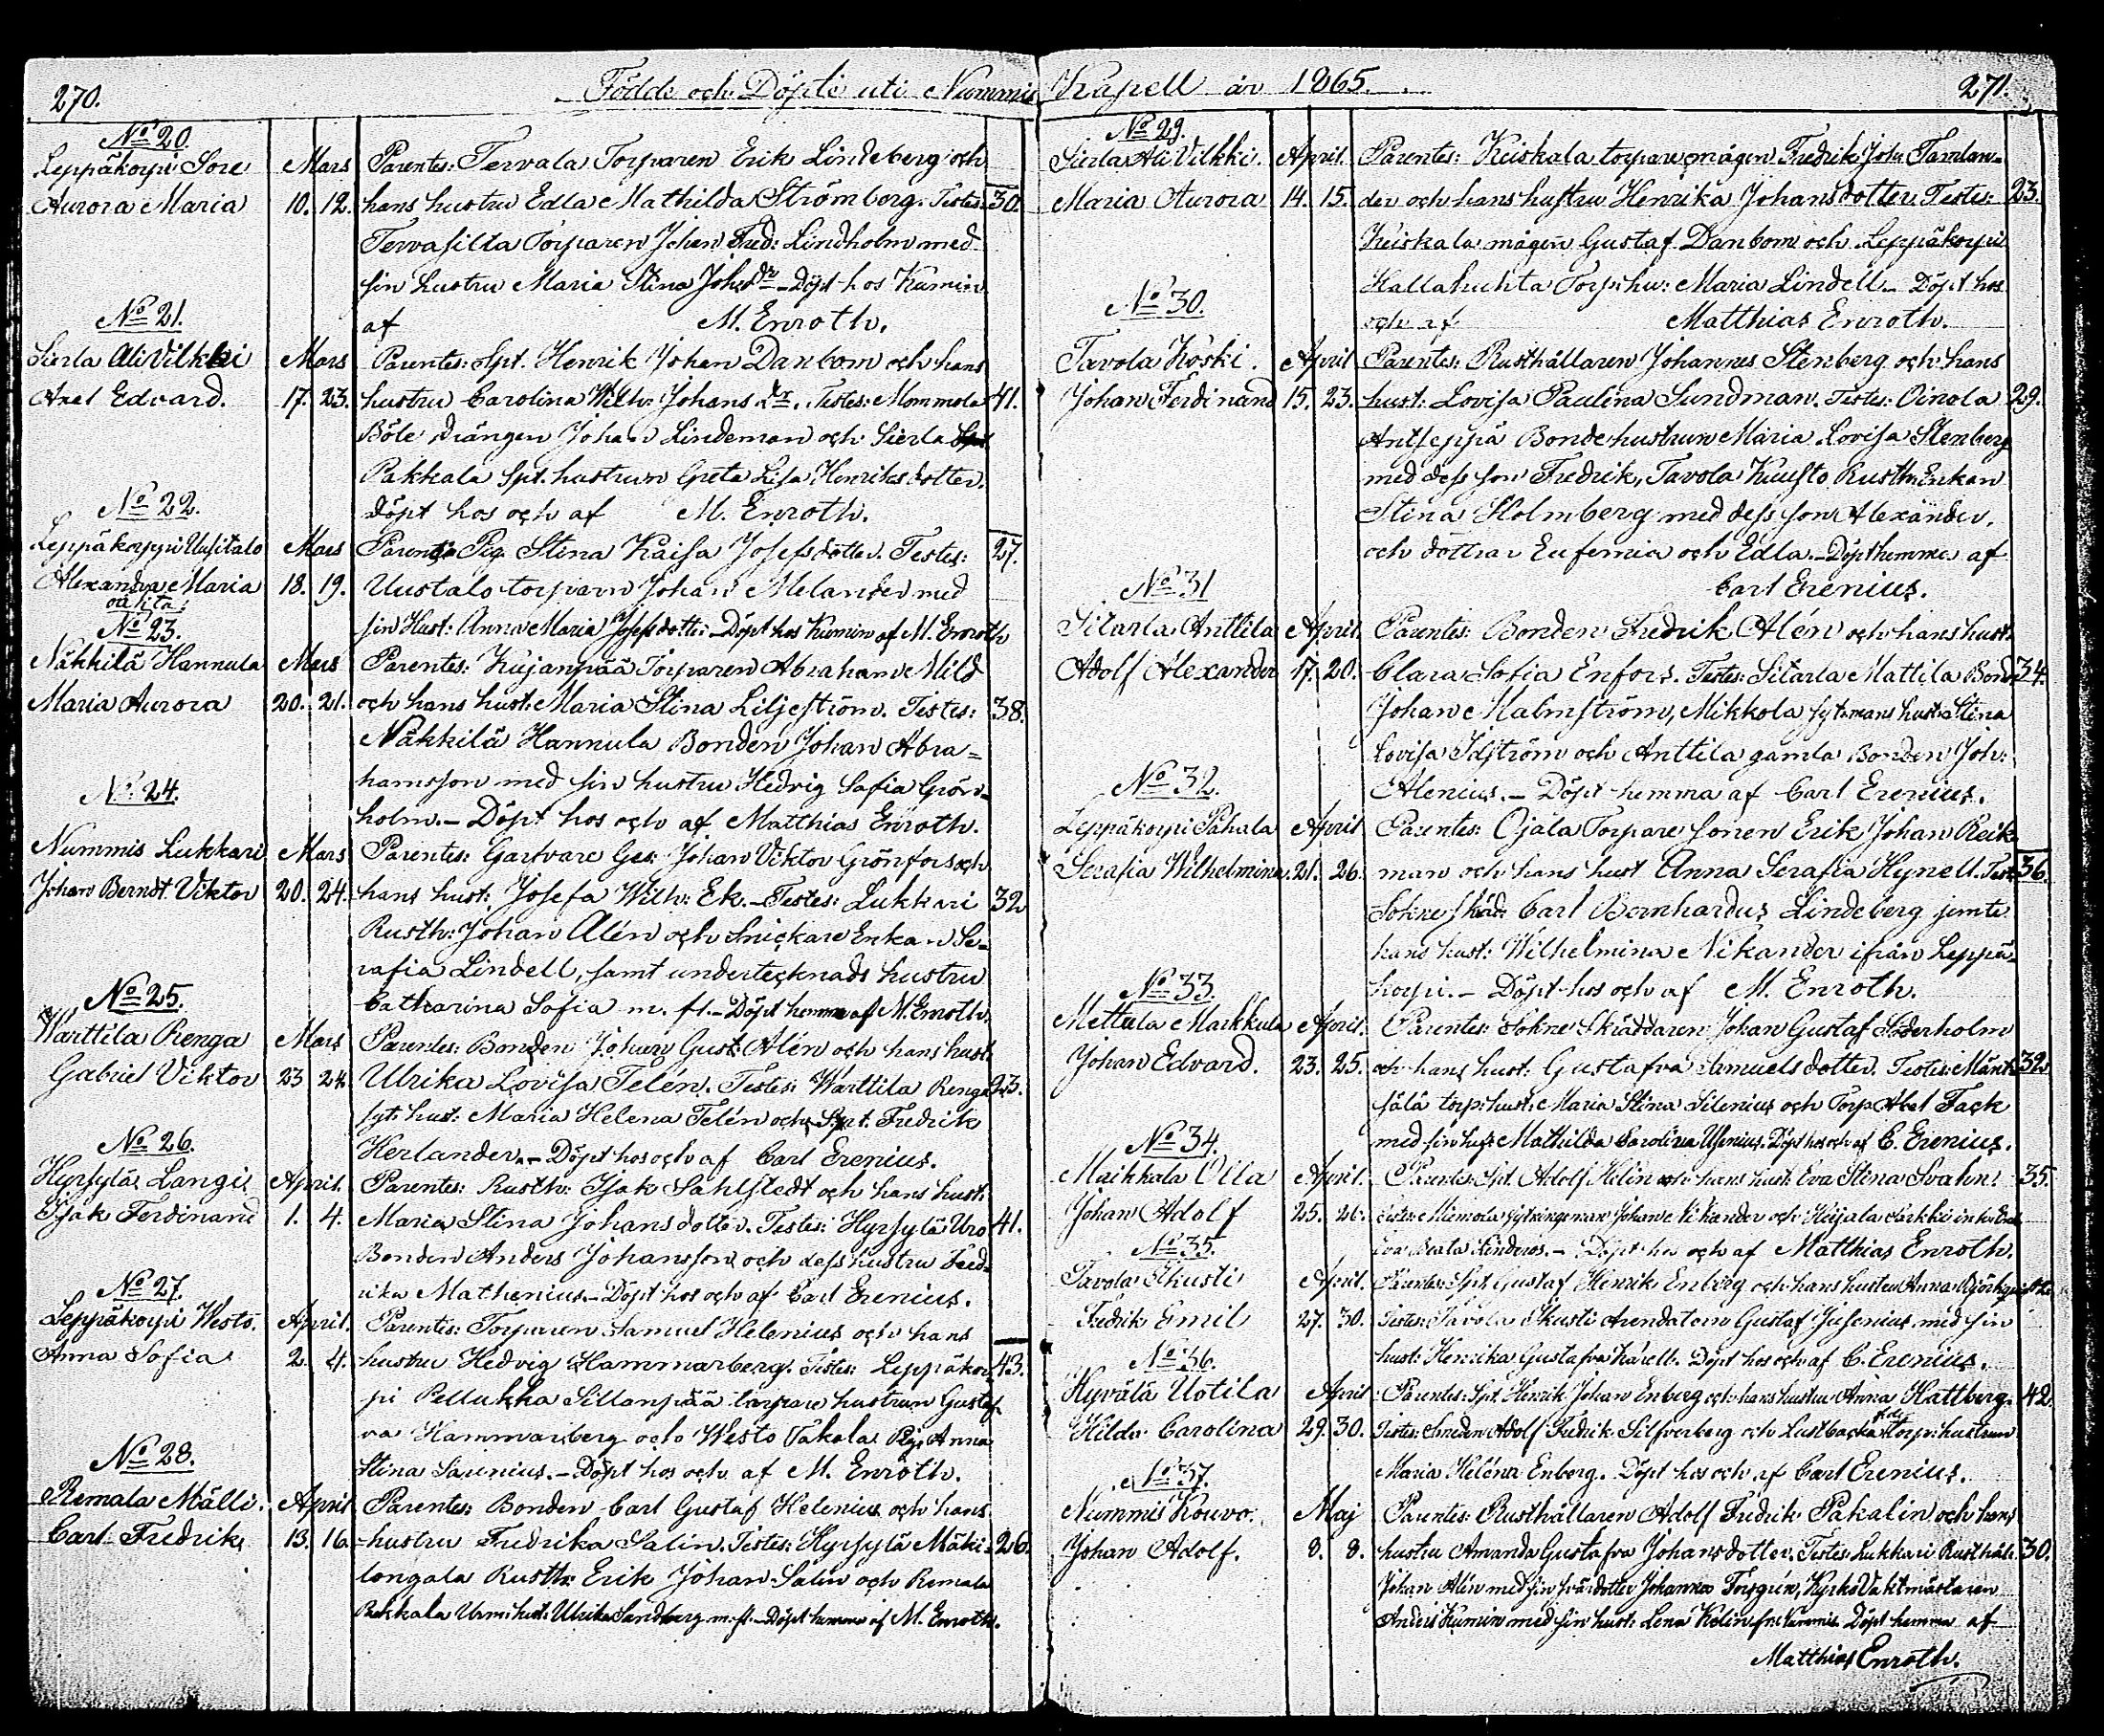 270.
Födde och Döpte uti Nummis Kapell år 1865.
271.
No 20.
Leppäkorpi Sore Mars Parentes: Tervala Torparen Erik Lindeberg och
Aurora Maria 10. 12. hans hustru Edla Mathilda Strömberg. Testes: 30.
Torparen Johan Fred: Lindholm med
sin hustru Maria Stina Johsdr – Döpt hos Kumin
af M. Enroth.
No 21.
Sierla Ali Vilkki Mars Parentes: Spt. Henrik Johan Danbom och hans
Axel Edvard. 17. 23. hustru Carolina Wilh: Johans dr. Testes: Mommola 41.
Böle drängen Johan Lindeman och Sierla
Pakkala Spt. hustrun Greta Lisa Henriksdotter.
Döpt hos och af M. Enroth.
No 22.
Leppäkorpi Uusitalo Mars Parentes Pig. Stina Kaisa Josefsdotter. Testes: 27.
Alexandra Maria 18. 19. Uustalo torparn Johan Melander med
oäkta:
sin Hust: Anna Maria Josefsdotter – Döpt hos Kumin af M. Enroth
No 23.
Näkkilä Hannula Mars Parentes: Kujanpää Torparen Abraham Mild
Maria Aurora 20. 21. och hans hust: Maria Stina Liljeström. Testes: 38.
Näkkilä Hannula Bonden Johan Abra=
hamsson med sin hustru Hedvig Sofia Grön=
holm. – Döpt hos och af Matthias Enroth.
No 24.
Nummis Lukkari Mars Parentes: Garfvare Ges: Johan Viktor Grönfors och
Johan Berndt Viktor 20. 24. hans hust: Josefa Wilh: Ek. – Testes: Lukkari 32
Rusth: Johan Alén och Snickare Enkan Se=
rafia Lindell, samt undertecknads hustru
Catharina Sofia m. fl. – Döpt hemma af M. Enroth.
No 25.
Warttila Renga Mars Parentes: Bonden Johan Gust: Alén och hans hust:
Gabriel Viktor 23 24. Ulrika Lovisa Telén. Testes: Warttila Renga 23.
syt: hust: Maria Helena Telén och Spt. Fredrik
Herlander. – Döpt hos och af Carl Erenius.
No 26.
Hyrsylä Langi April. Parentes: Rusth: Isak Sahlstedt och hans hust:
Isak Ferdinand 1. 4. Maria Stina Johansdotter. Testes: Hyrsylä Uro 41.
Bonden Anders Johansson och dess hustru Fred=
rika Mathenius. – Döpt hos och af Carl Erenius.
No 27.
Leppäkorpi Westo. April. Parentes: Torparen Samuel Helenius och hans
Anna Sofia 2. 4. hustru Hedvig Hammarberg. Testes: Leppäkor= 43.
pi Pellukka Sillanpää torpare hustrun Gustaf=
va Hammarberg och Westo Takala Pig. Anna
Stina Sarenius. – Döpt hos och af M. Enroth.
No 28.
Remala Mälli. April Parentes: Bonden Carl Gustaf Helenius och hans
Carl Fredrik 13. 16. hustru Fredrika Salin. Testes: Hyrsylä Mäki= 26.
longala Rusth: Erik Johan Salin och Remala
Pakkala hust: Ulrika Sandberg m. fl. – Döpt hemma af M. Enroth.
No 29.
Sierla Ali Vilkki. April. Parentes: Keiskala torpare mågen Fredrik Joh: Tamlan=
Maria Aurora 14. 15. der och hans hustru Henrika Johansdotter. Testes: 23.
Keiskala mågen Gustaf Danbom och Leppäkorpi
Hallahuhta Torp: hu: Maria Lindell – Döpt hos
och af Matthias Enroth.
No 30.
Tavola Koski. April Parentes: Rusthållaren Johannes Stenberg och hans
Johan Ferdinand 15. 23. hust: Lovisa Paulina Sundman. Testes: Oinola 29.
Antseppä Bondehustrun Maria Lovisa Stenberg
med dess son Fredrik, Tavola Kuusto Rusth: Enkan
Stina Holmberg med dess son Alexander,
och döttrar Eufemia och Edla. – Döpt hemma af
Carl Erenius.
No 31
Sitarla Anttila April. Parentes: Bonden Fredrik Alén och hans hust:
Adolf Alexander 17. 20. Clara Sofia Enfors. Testes: Sitarla Mattila Bond: 34.
Johan Malmström, Mikkola sytmans hust: Stina
Lovisa Idström och Anttila gamla Bonden Joh:
Alenius. – Döpt hemma af Carl Erenius.
No 32.
Leppäkorpi Pahala April Parentes: Ojala Torpare sonen Erik Johan Reck=
Serafia Wilhelmina. 21. 26. man och hans hust Anna Serafia Hynell. Test: 36.
Sokne skräd: Carl Bernhardus Lindeberg jemte
hans hust: Wilhelmina Nikander ifrån Leppä=
korpi. – Döpt hos och af M. Enroth.
No 33.
Mettula Markkula April. Parentes: Sokne Skräddaren Johan Gustaf Söderholm
Johan Edvard. 23. 25. och hans hust: Gustafva Samuelsdotter. Testes: Mänt= 32.
sälä torp: hust: Maria Stina Silenius och Torp. Abel Fack
med sin hust: Mathilda Carolina Usenius. Döpt hos och af C. Erenius.
No 34.
Maikkala Olla April. Parentes: Spt. Adolf Helin och hans hust: Eva Stina Svahn. 35.
Johan Adolf 25. 26. Testes: Mömola sytningsman Johan Nikander och Heijala Särkki
Eva Beata Linderos. – Döpt hos och af Matthias Enroth.
No 35.
Tavola Skusti April. Parentes: Spt. Gustaf Henrik Enberg och hans hustru Anna
Fredrik Emil 27. 30. Testes: Tavola Skusti Arendatorn Gustaf Jusenius med sin
hust: Henrika Gustafva Karell. Döpt hos och af C. Erenius.
No 36.
Hyvälä Uotila April. Parentes: Spt. Henrik Johan Enberg och hans hustru Anna Hattberg. 42.
Hilda Carolina 29. 30. Testes: Smeden Adolf Fredrik Silfverberg och Lustbacka Torp: hustrun
Maria Helena Enberg. Döpt hos och af Carl Erenius.
No 37.
Nummis Kouvo. Maj Parentes: Rusthållaren Adolf Fredrik Pakalin och hans
Johan Adolf. 8. 8. hustru Amanda Gustafva Johansdotter. Testes: Lukkari Rusthåll: 30.
Johan Alén med sin svärdotter Johanna Forsgrén, Kyrko Vaktmästaren
Anders Kumin med sin hust: Lena Kolin Döpt hemma af
Matthias Enroth.